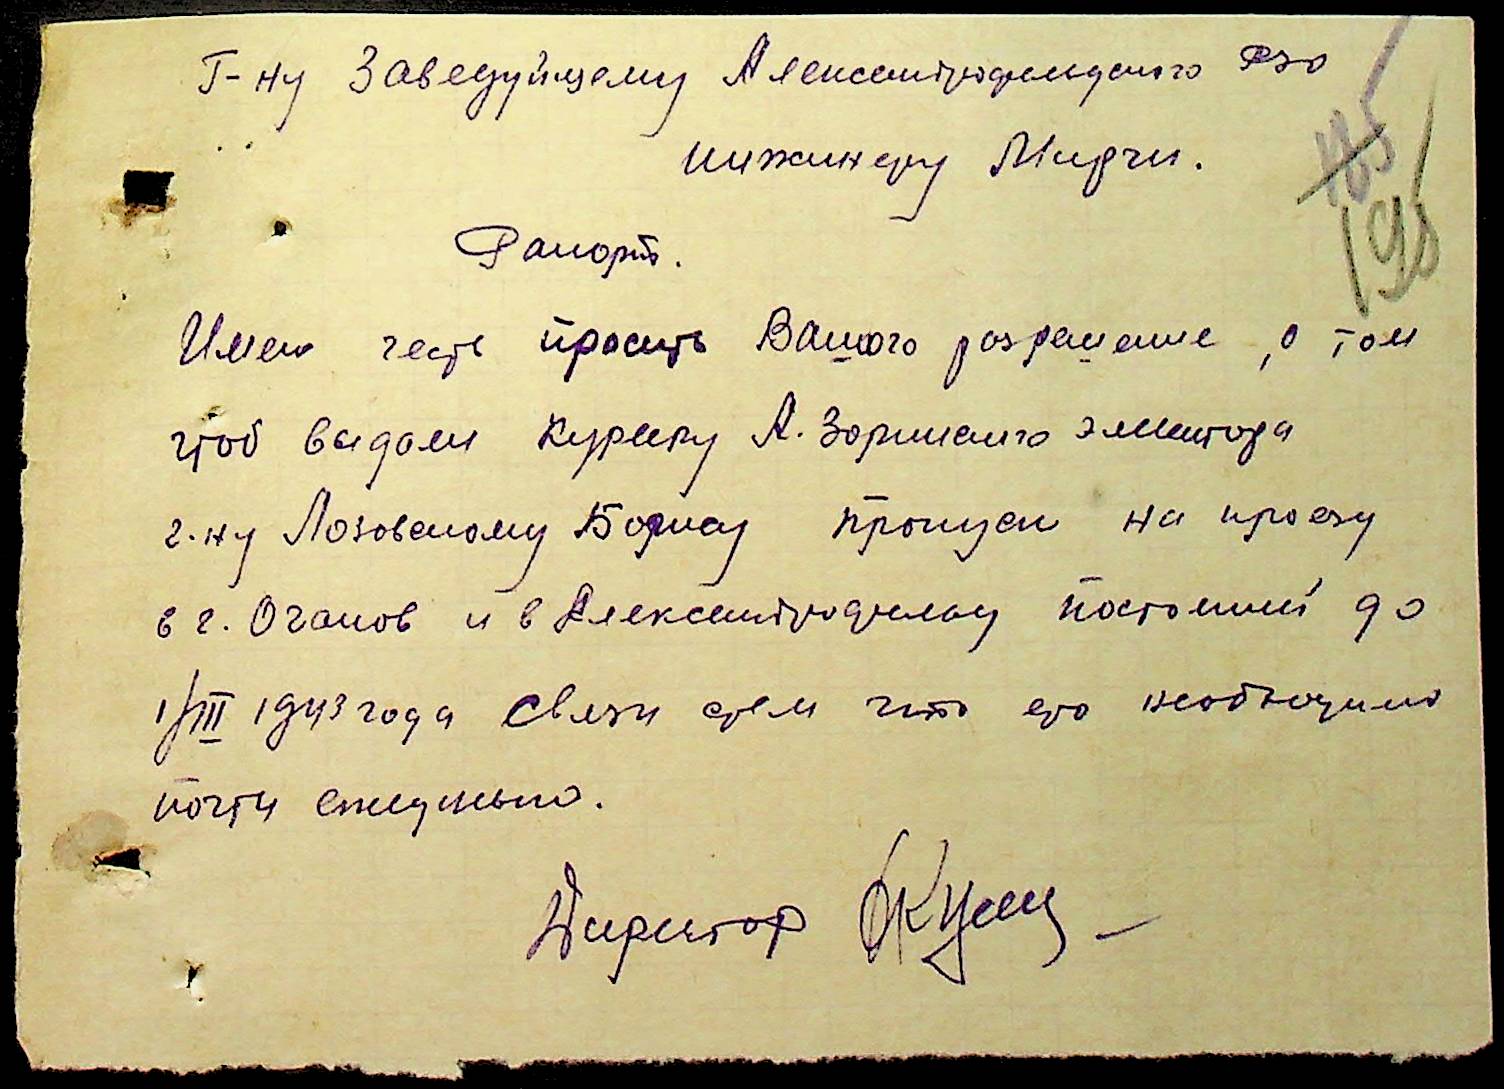 Г-ну Заведуйщему Александрофельдского РЗО
инжинеру Мирчи.
185
195
Рапорт.
Имею честь просить Вашого разрешение, о том
чтоб выдали курьеру А. Зоринского
г-ну Лозовскому Борису пропуск на проезд
в г. Очаков и в Александрофельд постоянный до
1/III 1943 года связи стем что его необходимо
почти ежедневно.
Директор